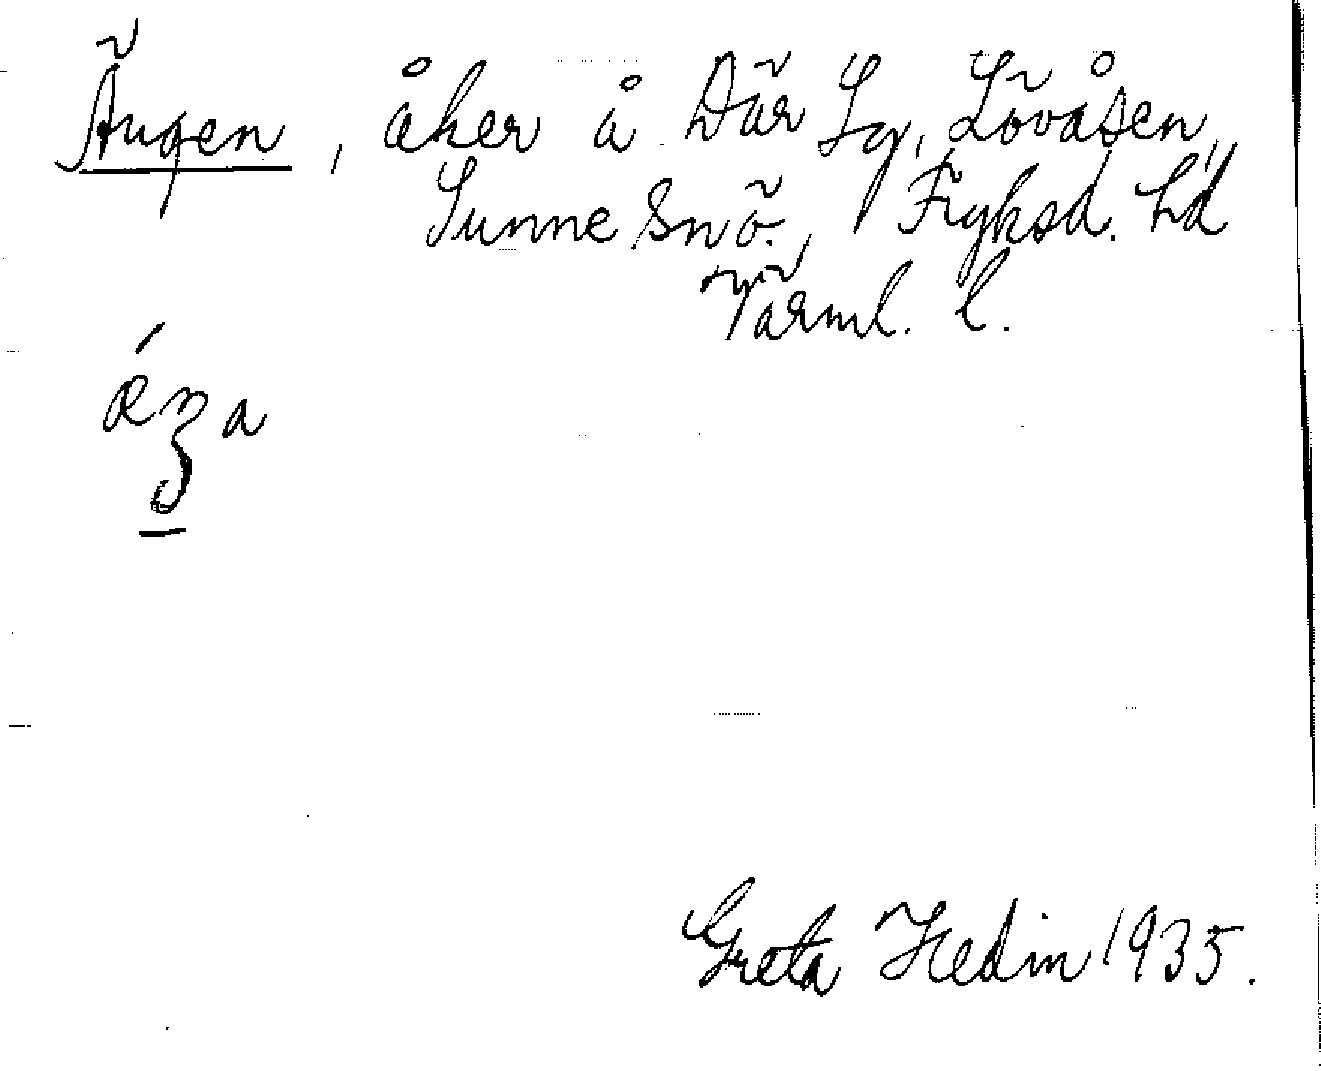 Ängen, åker å Där Sg, Lövåsen,
Sunne snö., Fryksd. hd
Värml. l.
Greta Hedin 1935.